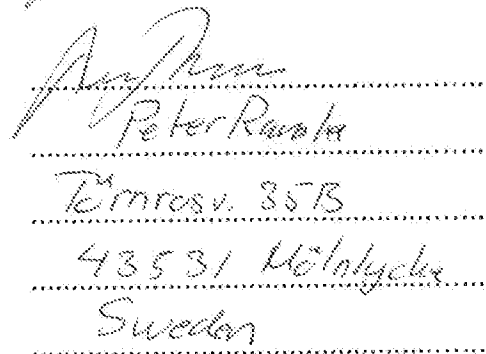 Peter
Törnrosv. 35B
43531 Mölnlycke
Sweden